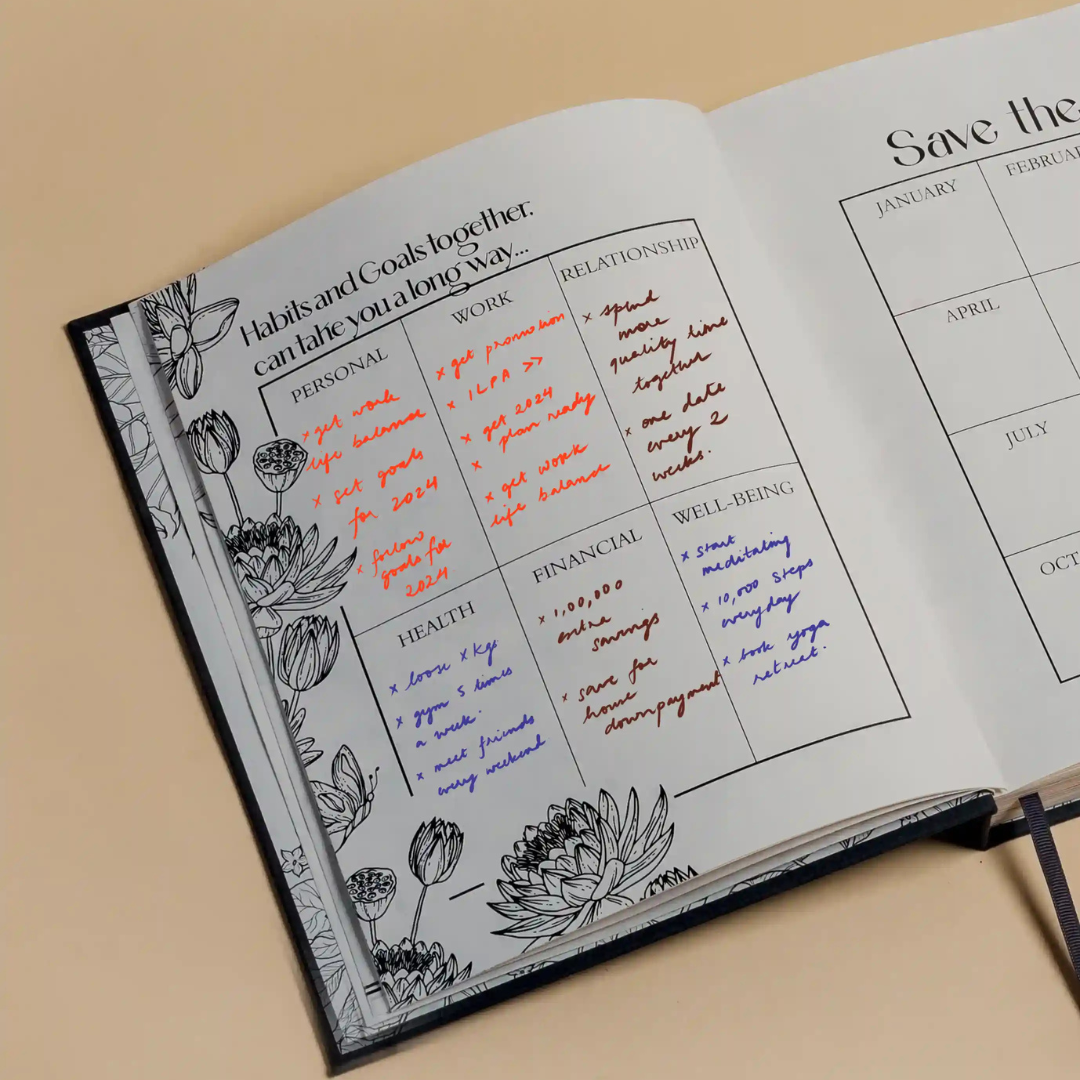 Habits and Goals together.
can take you a long way...
PERSONAL
x get work
life balance
x set goals
for 2024
x follow
goals for
2024
WORK
x get promotion
x ILPA >>
x get 2024
x plan ready
x get work
life balance
RELATIONSHIP
x spend
more
quality time
together
x one date
every 2
weeks.
HEALTH
x loose x kgs
x gym 5 times
a week.
x meet friends
every weekend
FINANCIAL
x 1,00,000
extra
savings
x save for
house
downpayment
WELL-BEING
x start
meditating
x 10,000 steps
everyday
x book yoga
retreat.
Save the
JANUARY
FEBRUA
APRIL
JULY
OCT